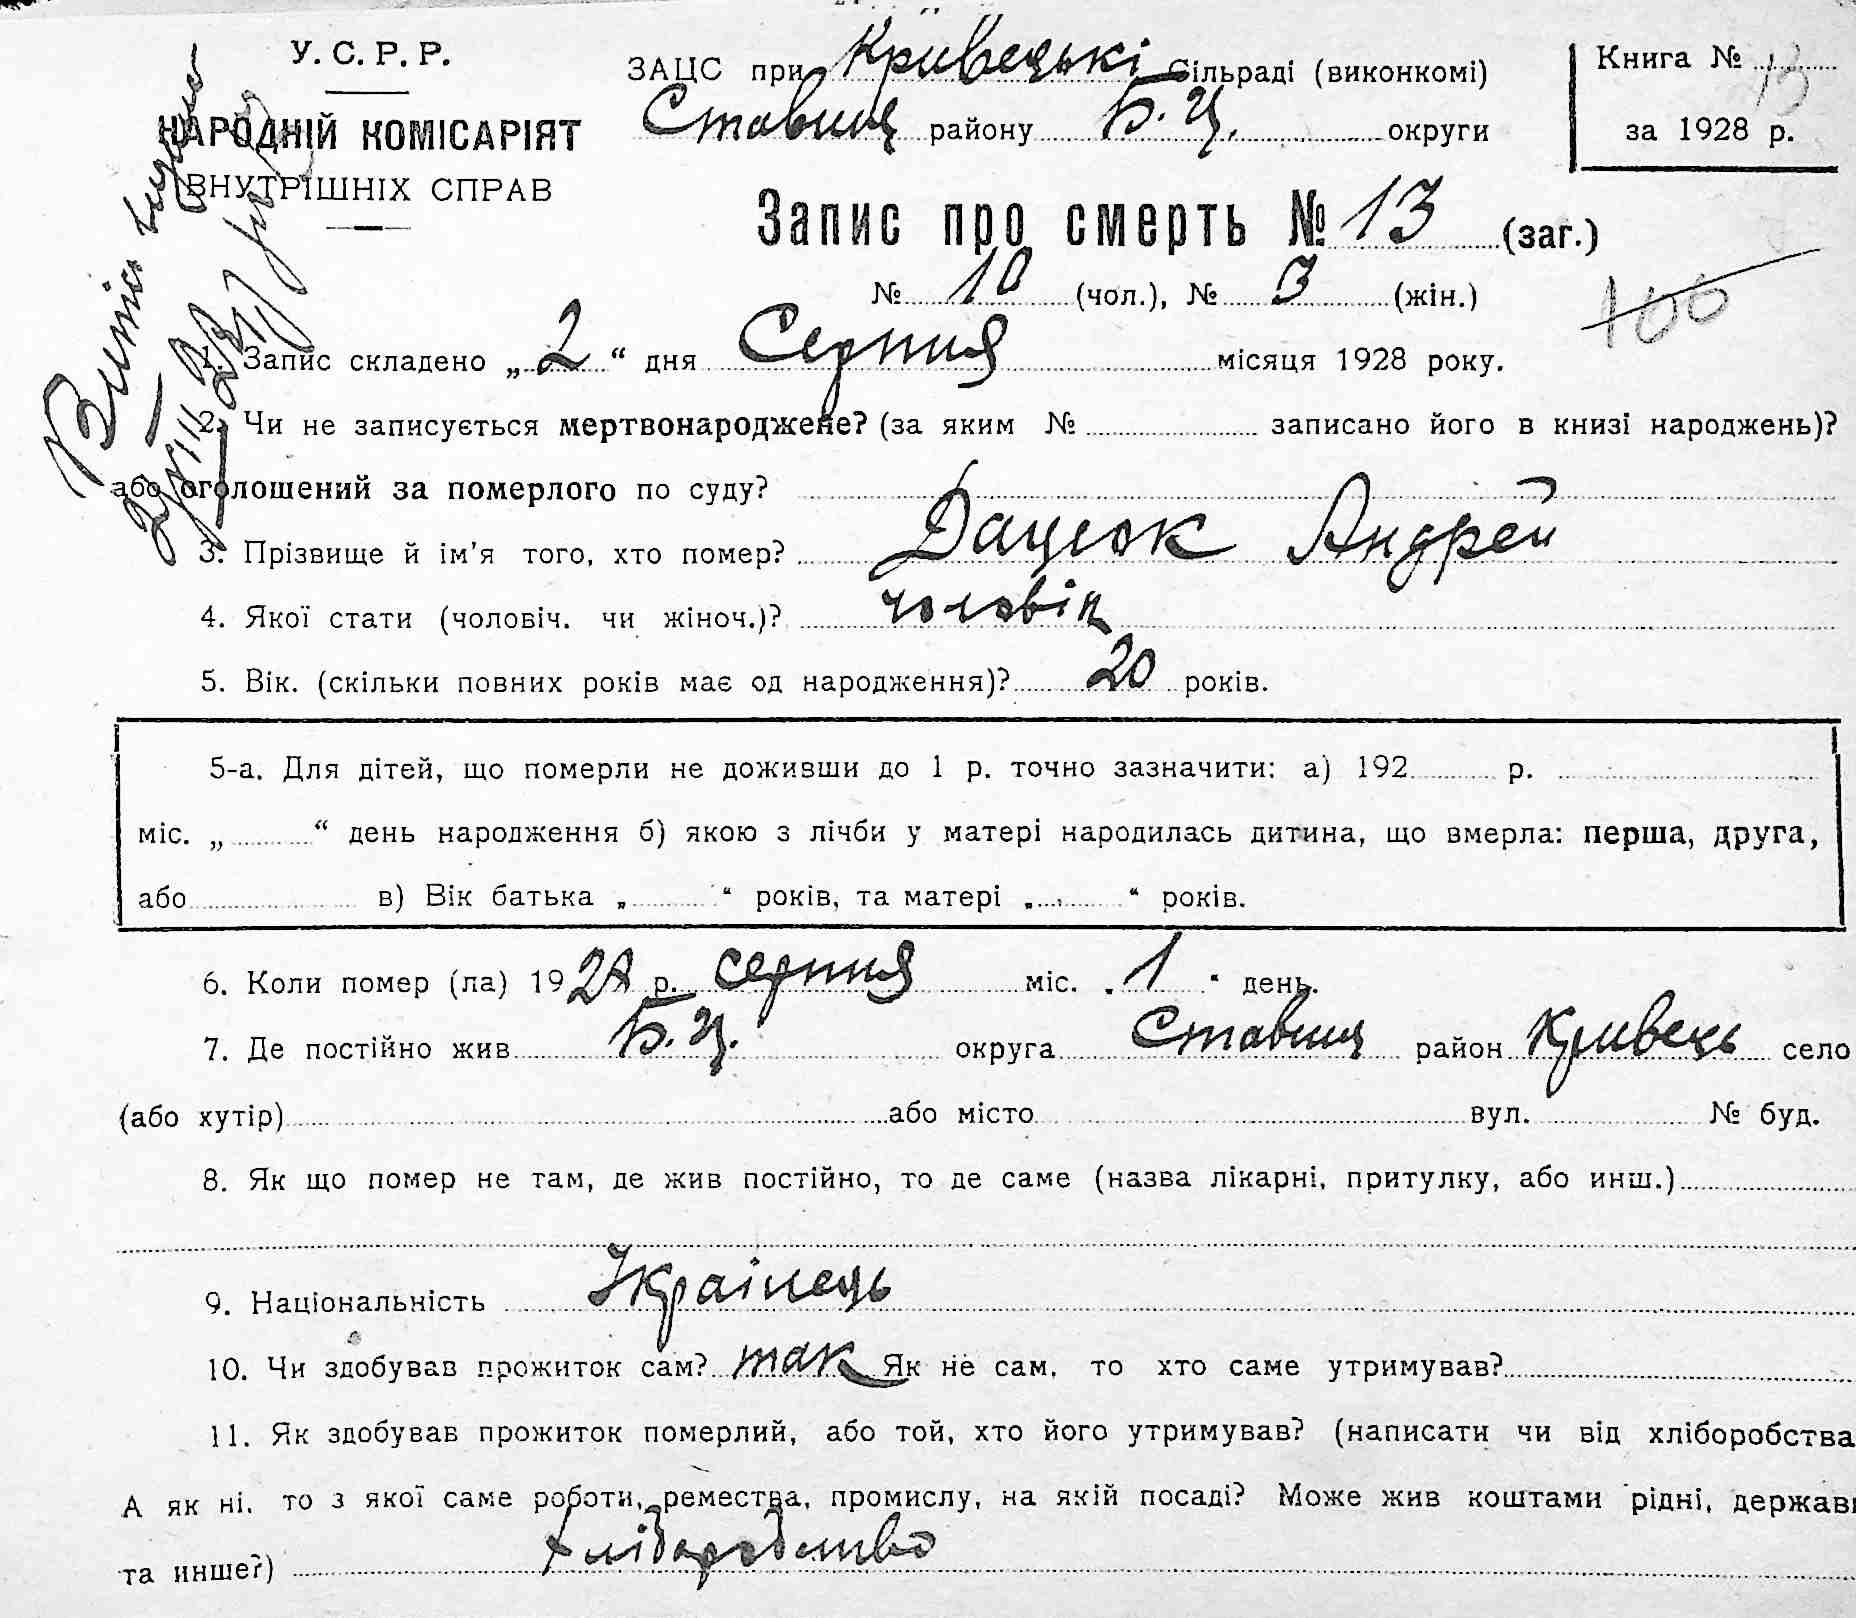 У. С. Р. Р.
НАРОДНІЙ КОМІСАРІЯТ
ВНУТРІШНІХ СПРАВ
ЗАЦС при Кривецькі Сільраді (виконкомі)
Ставищ району Б. Ц. округи
Книга №
за 1928 р.
Запис про смерть № 13 (заг.)
№ 10 (чол.), № 3 (жін.)
100
1. Запис складено „2“ дня Серпня місяця 1928 року.
2. Чи не записується мертвонароджене? (за яким № записано його в книзі народжень)?
або оголошений за померлого по суду?
3. Прізвище й ім'я того, хто помер? Дацюк Андрей
4. Якої стати (чоловіч. чи жіноч.)? чоловік
5. Вік. (скільки повних років має од народження)? 20 років.
5-а. Для дітей, що померли не доживши до 1 р. точно зазначити: а) 192 р.
міс. „ “ день народження б) якою з лічби у матері народилась дитина, що вмерла: перша, друга,
або в) Вік батька „ “ років, та матері „ “ років.
6. Коли помер (ла) 1928 р. серпня міс. „1“ день.
7. Де постійно жив Б. Ц. округа Ставищ район Кривець село
(або хутір) або місто вул. № буд.
8. Як що помер не там, де жив постійно, то де саме (назва лікарні, притулку, або инш.)
9. Національність Україпець
10. Чи здобував прожиток сам? так Як не сам, то хто саме утримував?
11. Як здобував прожиток померлий, або той, хто його утримував? (написати чи від хліборобства
А як ні, то з якої саме роботи, ремества, промислу, на якій посаді? Може жив коштами рідні, держав
та инше?) Хліборобство